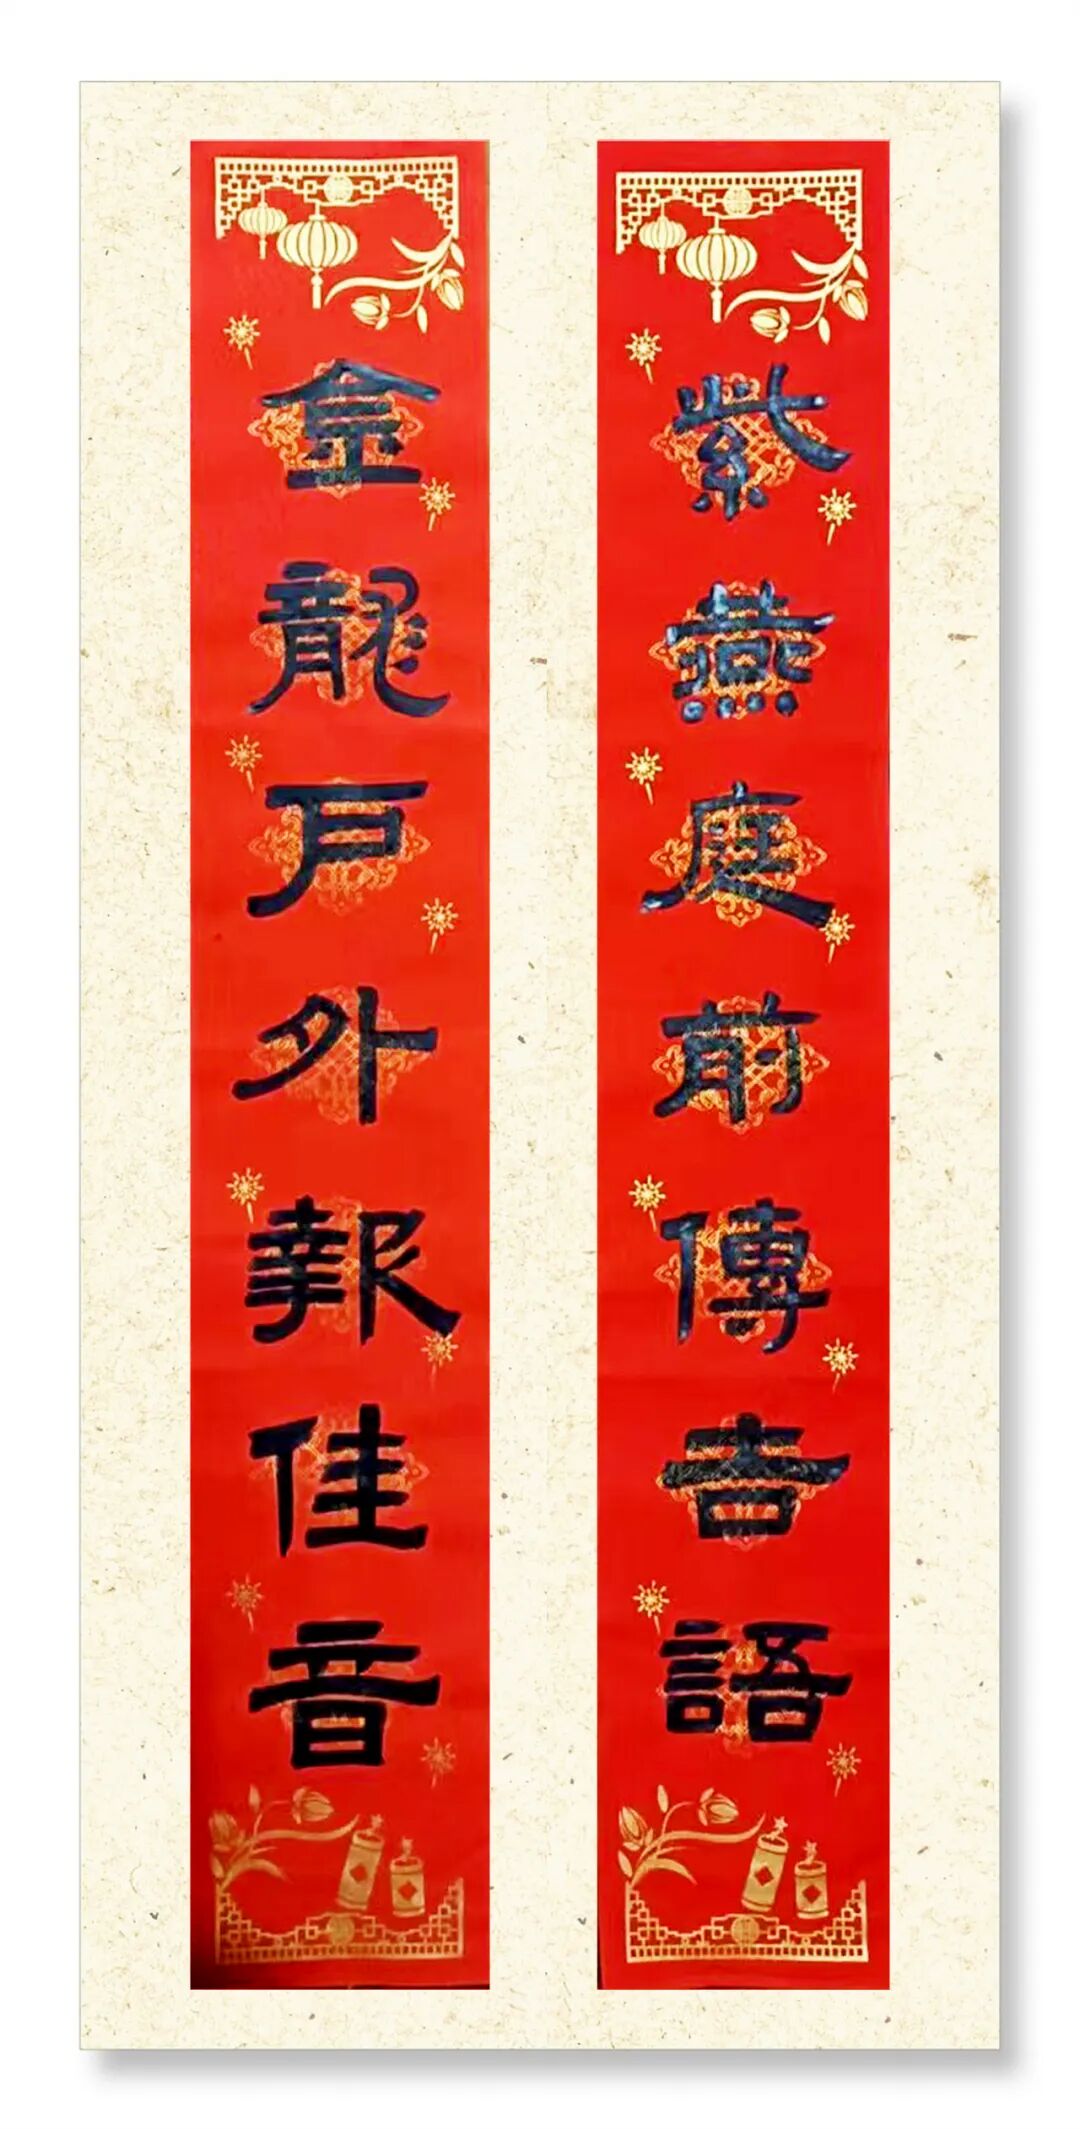 紫燕庭前傳吉語
金龍戶外報佳音